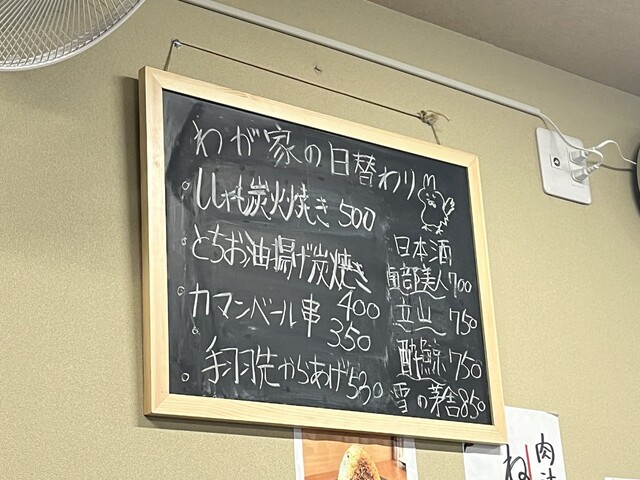 わが家の日替わり
ししゃも炭火焼き 500
とちお油揚げ炭焼き
400
カマンベール串
350
手羽先からあげ530
日本酒
南部美人700
立山 750
酔鯨750
雪の茅舎850
肉
ね